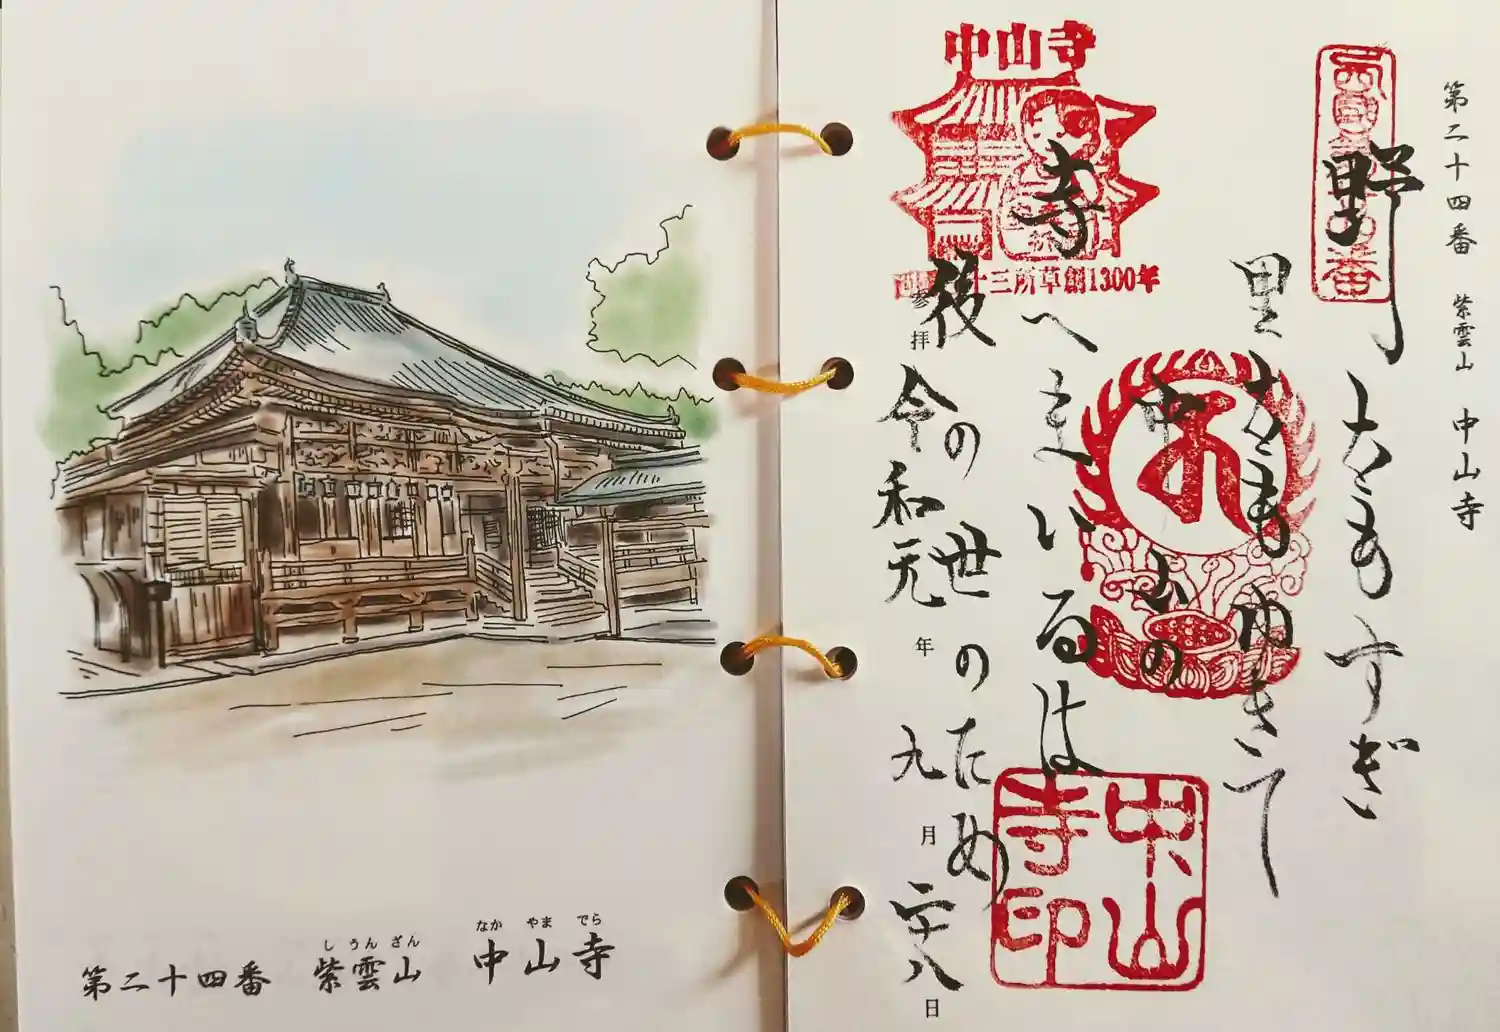 第二十四番 紫雲山 中山寺
野をもすぎ
里をもゆきて
中山の
寺へまいるは
後の世のため
参拝 令和元年九月二十八日
中山寺
十三所草創1300年
中山寺印
第二十四番 紫雲山 中山寺
しうんざん なかやまでら